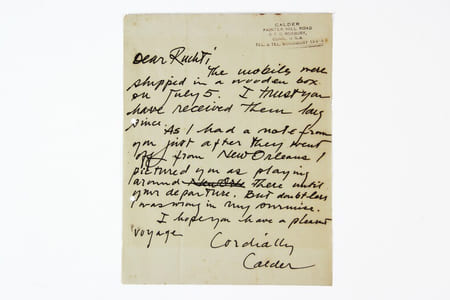 CALDER
PAINTER HILL ROAD
R.F.D. ROXBURY,
CONN. U.S.A.
TEL. & TEL. WOODBURY
Dear Ruchti
The mobiles were
shipped in a wooden box
on July 5. I trust you
have received them long
since.
As I had a note from
you just after they went
off from New Orleans I
pictured you as playing
around there until
your departure. But doubtless
I was wrong in my surmise.
I hope you have a pleasant
voyage
Cordially
Calder